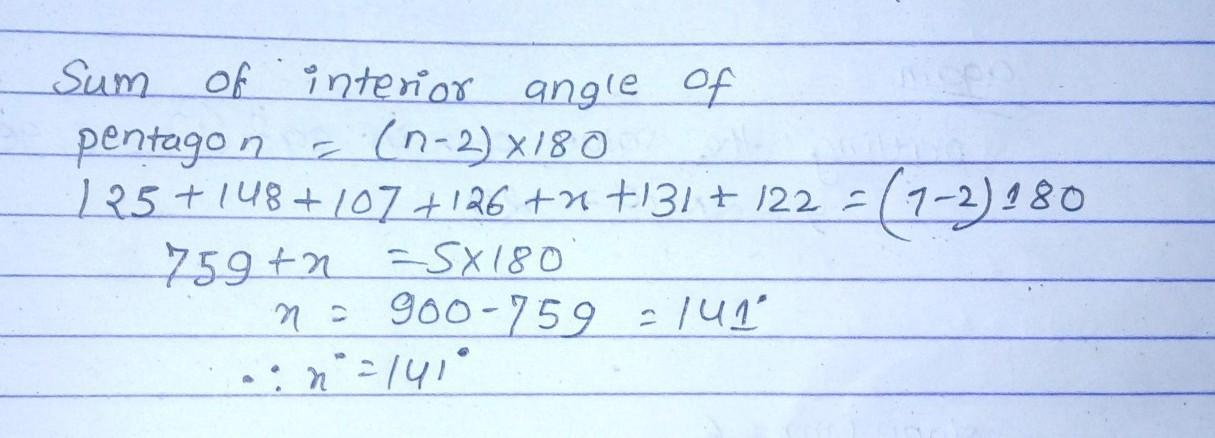 Sum of interior angle of
pentagon = (n-2)×180
125+148+107+126+x+131+122=(7-2)180
759+x =5×180
x = 900-759 =141°
∴ x°=141°